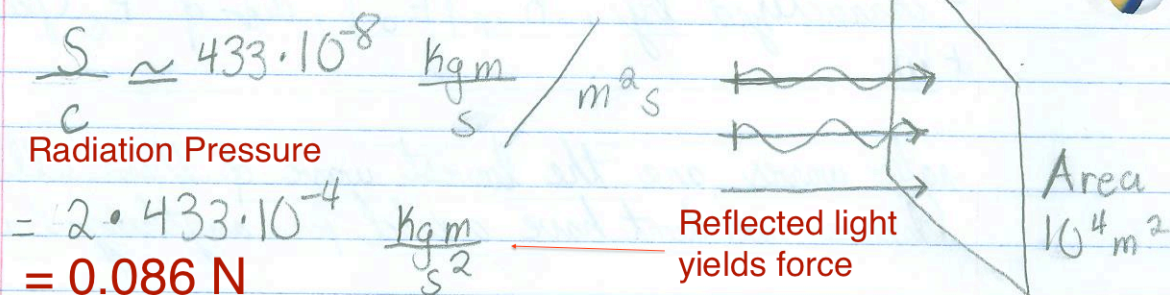 S/c ≃ 433·10⁻⁸ kgm/s / m²s
Radiation Pressure
= 2·433·10⁻⁴ kgm/s²
= 0.086 N
Reflected light
yields force
Area
10⁴m²